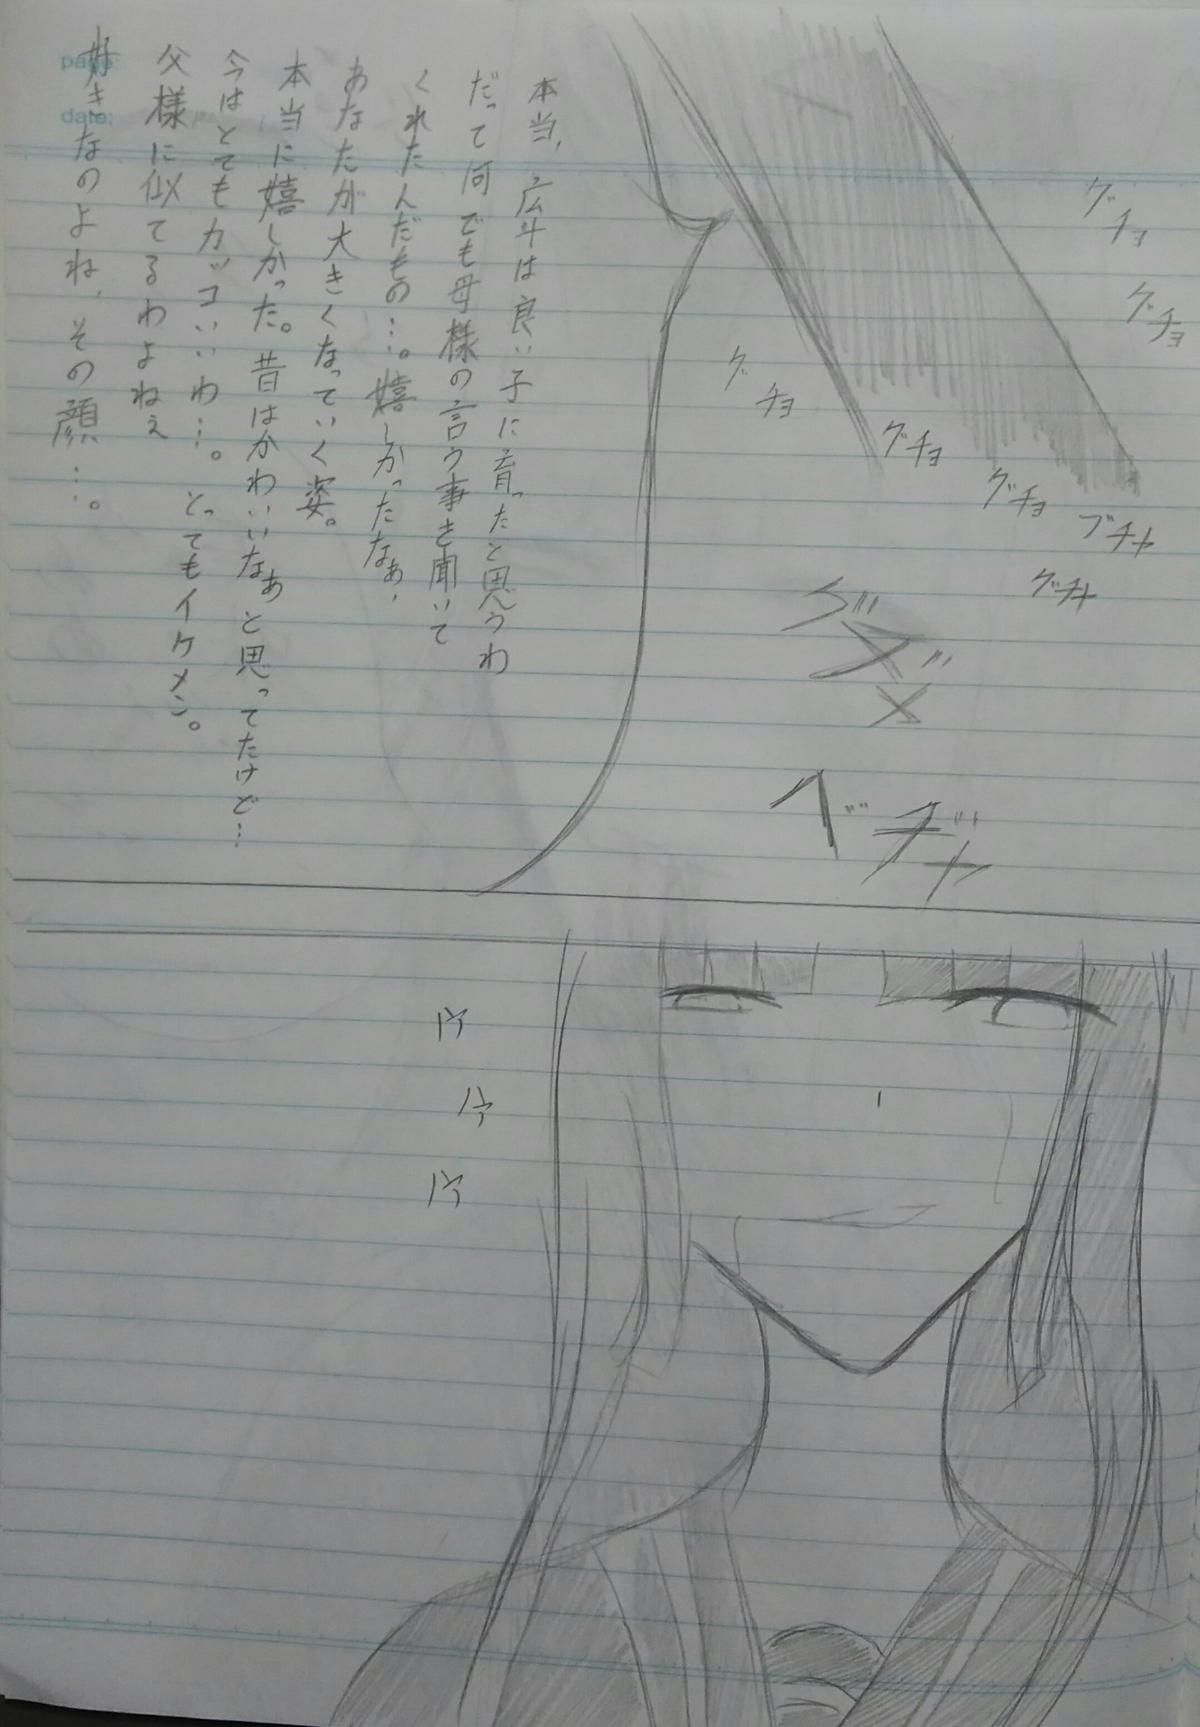 グチョ
グチョ
グチョ
グチョ
グチョ
ブチャ
グチャ
グズッ
ベヂャ
本当、広斗は良い子に育ったと思うわ
だって何でも母様の言う事を聞いて
くれたんだもの…。嬉しかったなぁ、
あなたが大きくなっていく姿。
本当に嬉しかった。昔はかわいいなぁと思ってたけど…
今はとてもカッコいいわ…。とってもイケメン。
父様に似てるわよねぇ
好きなのよね、その顔…。
page:
date: